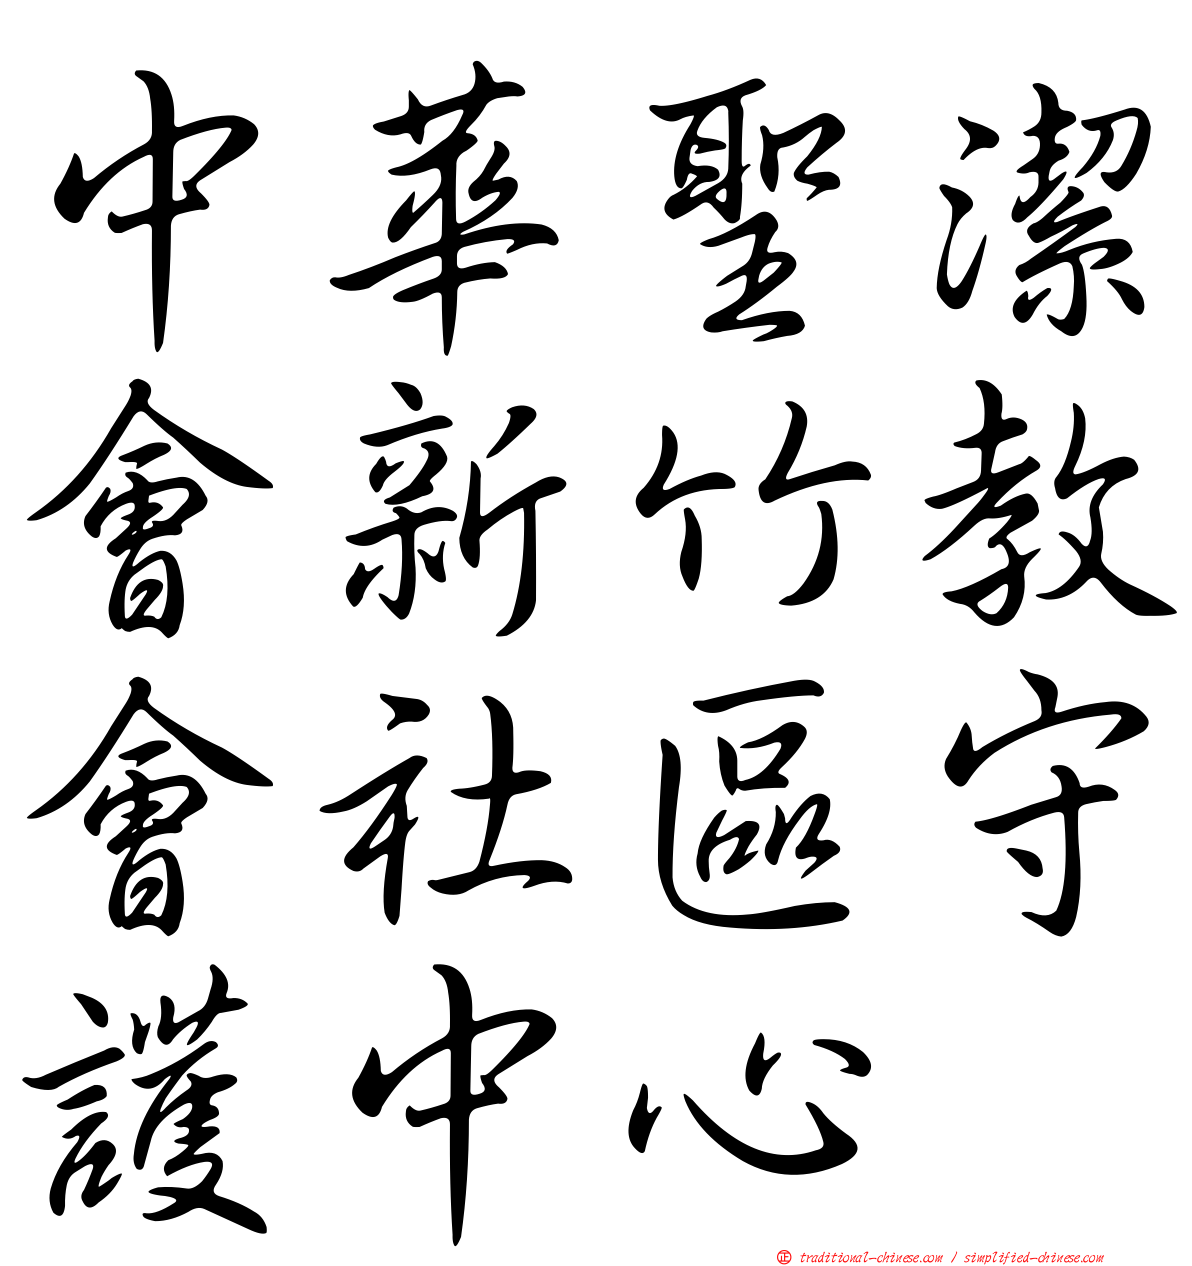 中華聖潔
會新竹教
會社區守
護中心
正 traditional-chinese.com / simplified-chinese.com